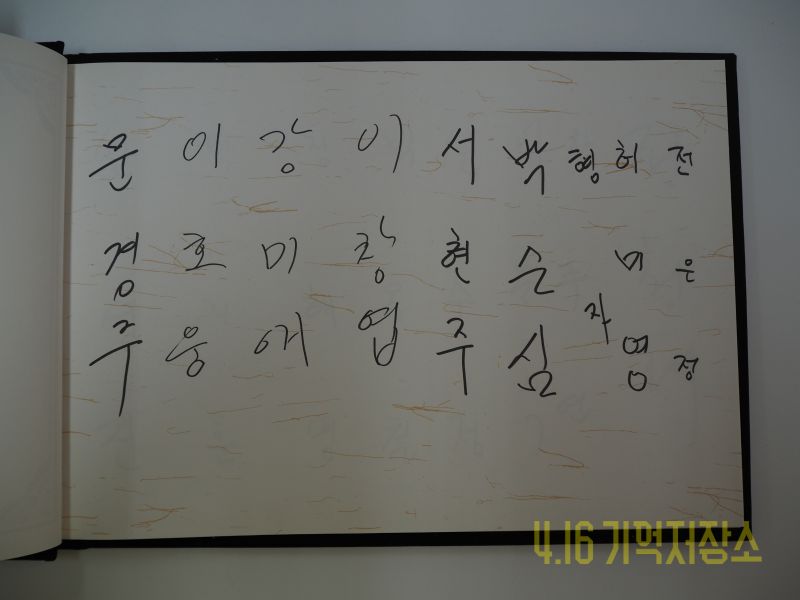 문경주
이호웅
강미애
이창엽
서현주
박순심
형자
허미영
전은정
4.16 기억저장소